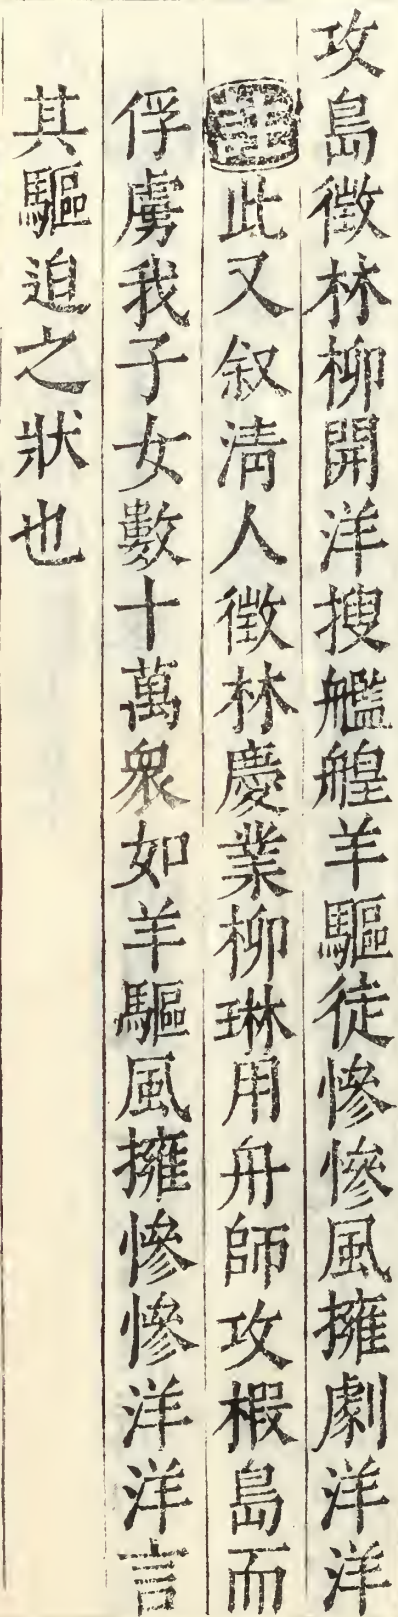 攻島徵林柳開洋搜艦艎羊驅徒慘慘風擁劇洋洋
此又叙淸人徵林慶業柳琳用舟師攻椵島而
俘虜我子女數十萬衆如羊驅風擁慘慘洋洋言
其驅迫之狀也